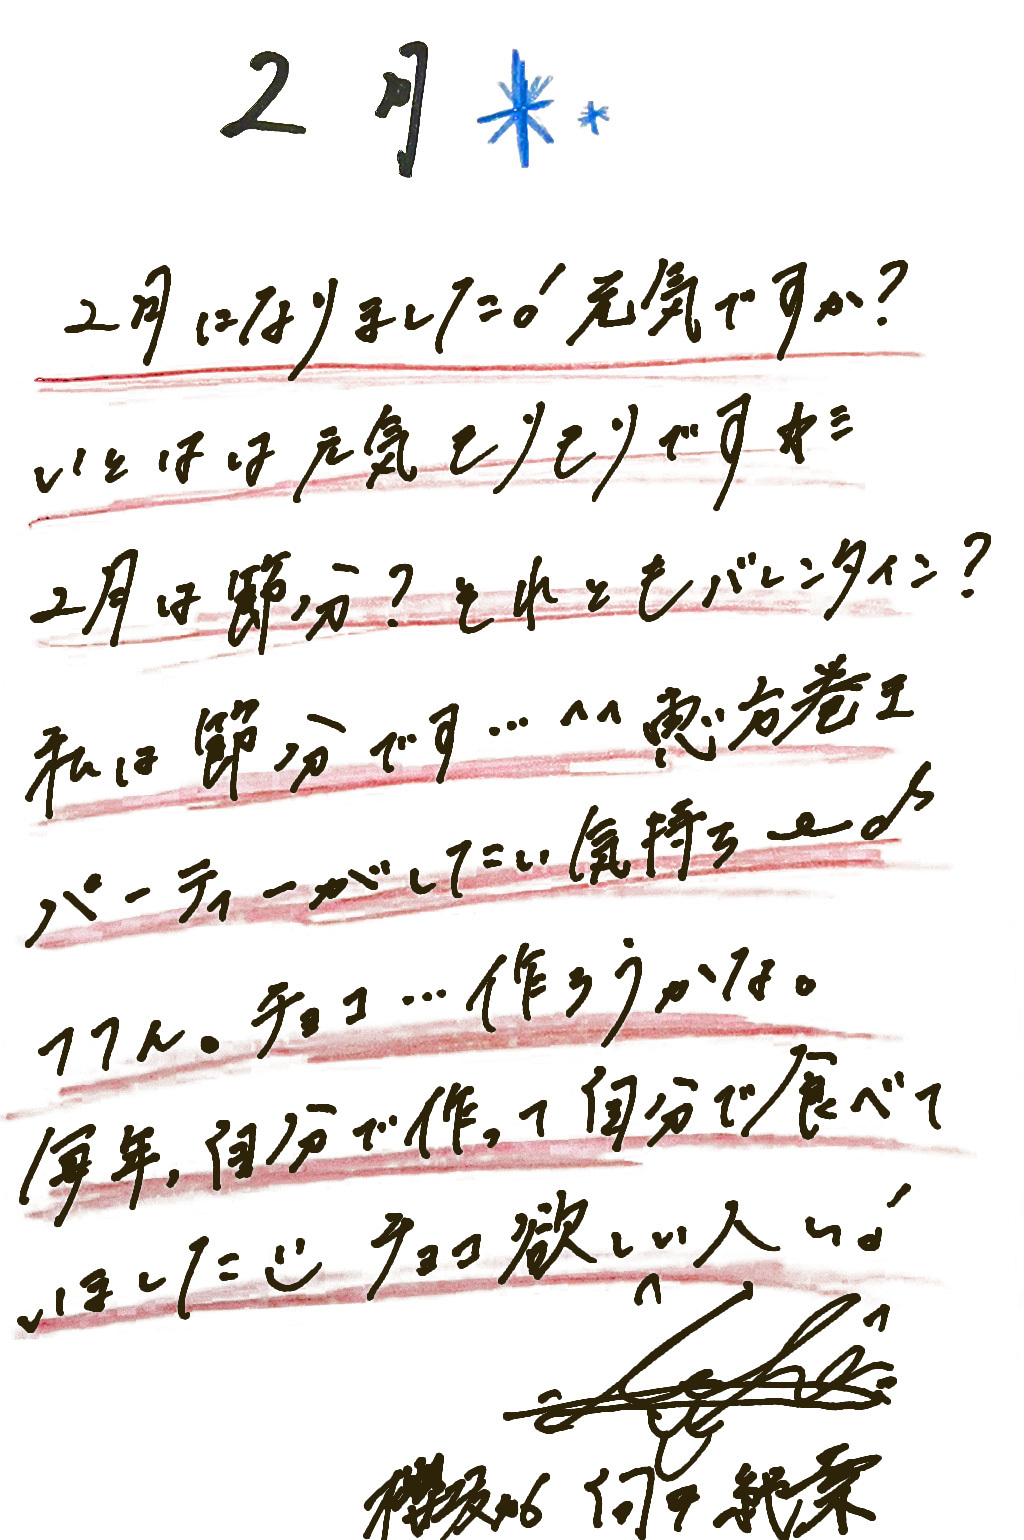 2月
2月になりました！元気ですか？
いとはは元気モリモリですキミ
2月は節分？それともバレンタイン？
私は節分です…^^ 恵方巻き
パーティーがしたい気持ち
うん。チョコ…作ろうかな。
毎年、自分で作って自分で食べて
いました チョコ欲しい人い！
櫻坂46